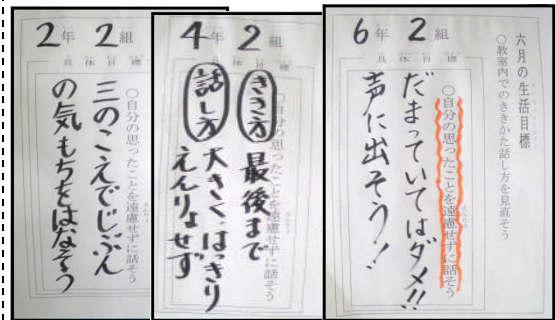 2年 2組
具体目標
○自分の思ったことを遠慮せずに話そう
三のこえでじぶん
の気もちをはなそう
4年 2組
具体目標
○自分の思ったことを遠慮せずに話そう
きき方 最後まで
話し方 大きく、はっきり
えんりょせず
六月の生活目標
○教室内でのききかた話し方を見直そう
6年 2組
具体目標
○自分の思ったことを遠慮せずに話そう
だまっていてはダメ!!
声に出そう!